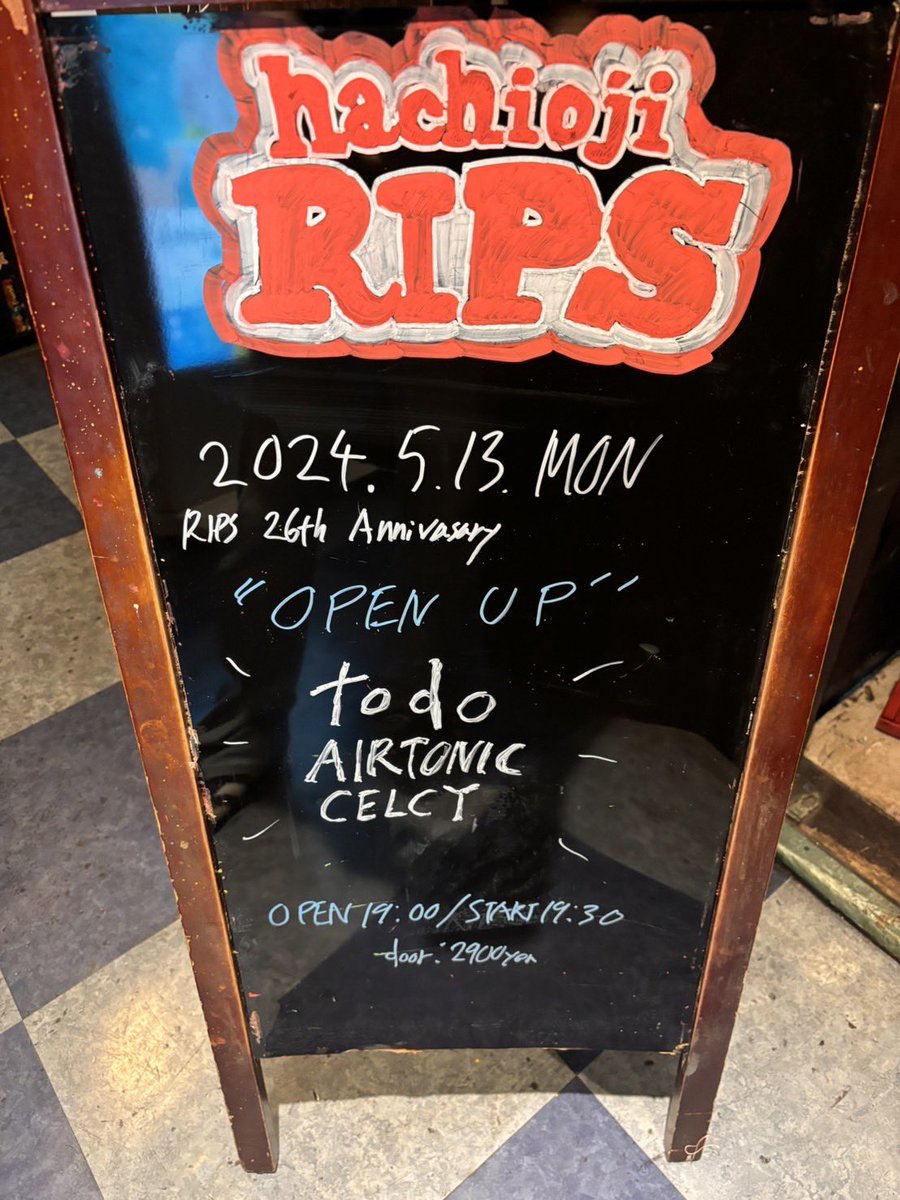 hachioji
RIPS
2024.5.13.MON
RIPS 26th Annivasary
"OPEN UP"
todo
AIRTONIC
CELCY
OPEN 19:00/START 19:30
door: 2900yen